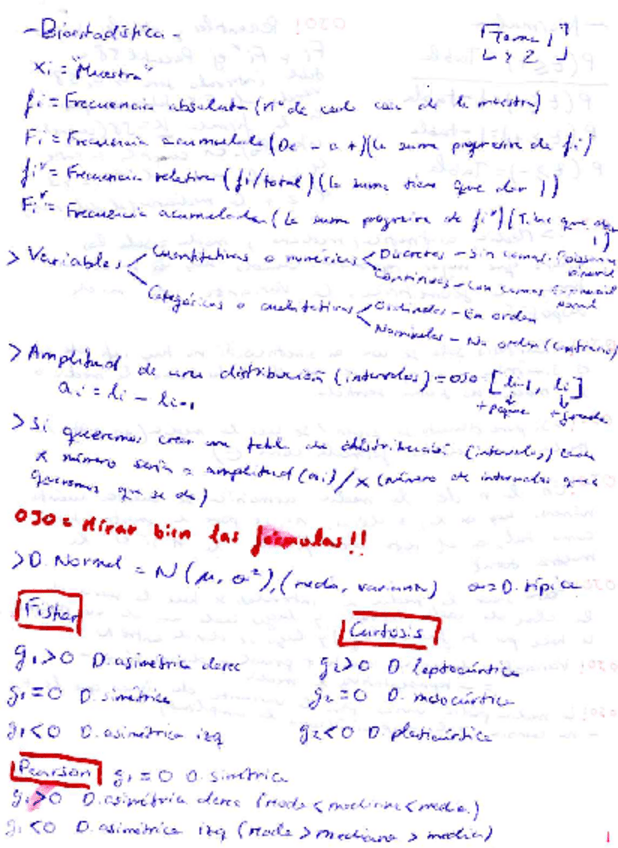 - Bioestadística -
[Tema 1 y 2]
xi = "Muestra"
fi = Frecuencia absoluta (nº de cada cosa de la muestra)
Fi = Frecuencia acumulada (De - a +) (la suma progresiva de fi)
fi* = Frecuencia relativa (fi/total) (la suma tiene que dar 1)
Fi* = Frecuencia acumulada (la suma progresiva de fi*) (Tiene que dar 1)
> Variables
Cuantitativas o numéricas
Discretas - Sin comas
Continuas - Con comas
Categóricas o cualitativas
Ordinales - En orden
Nominales - No orden (contrario)
> Amplitud de una distribución (intervalos) = OJO [li-1, li]
ai = li - li-1
+ peque + grande
> Si queremos crear una tabla de distribución (intervalos) cada
x número sería = amplitud (ai) / x (número de intervalos que
queremos que se de)
OJO = Mirar bien las fórmulas!!
> D. Normal = N (μ, σ²), (media, varianza) σ = D. típica
Fisher
g1>0 D. asimétrica derec
g1=0 D. simétrica
g1<0 D. asimétrica izq
Curtosis
g2>0 D. leptocúrtica
g2=0 D. mesocúrtica
g2<0 D. platicúrtica
Pearson g1=0 D. simétrica
g1>0 D. asimétrica derec (moda < mediana < media)
g1<0 D. asimétrica izq (moda > mediana > media)
1